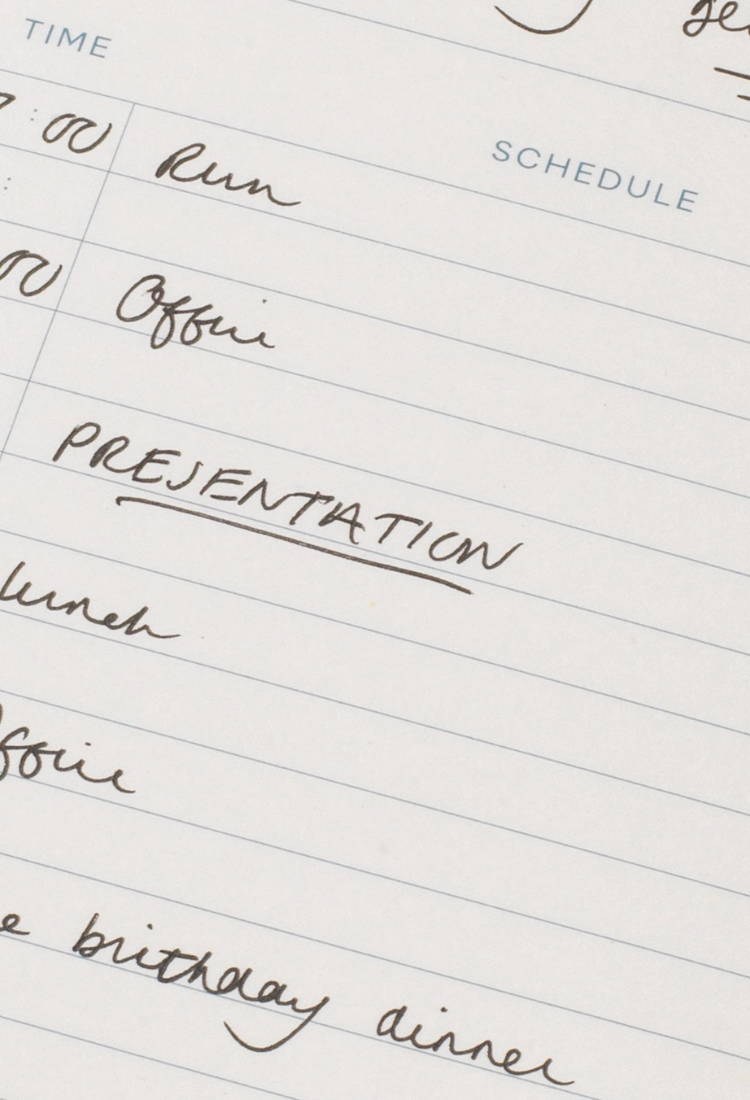 TIME
SCHEDULE
:00 Run
:
00 Office
PRESENTATION
lunch
office
birthday dinner